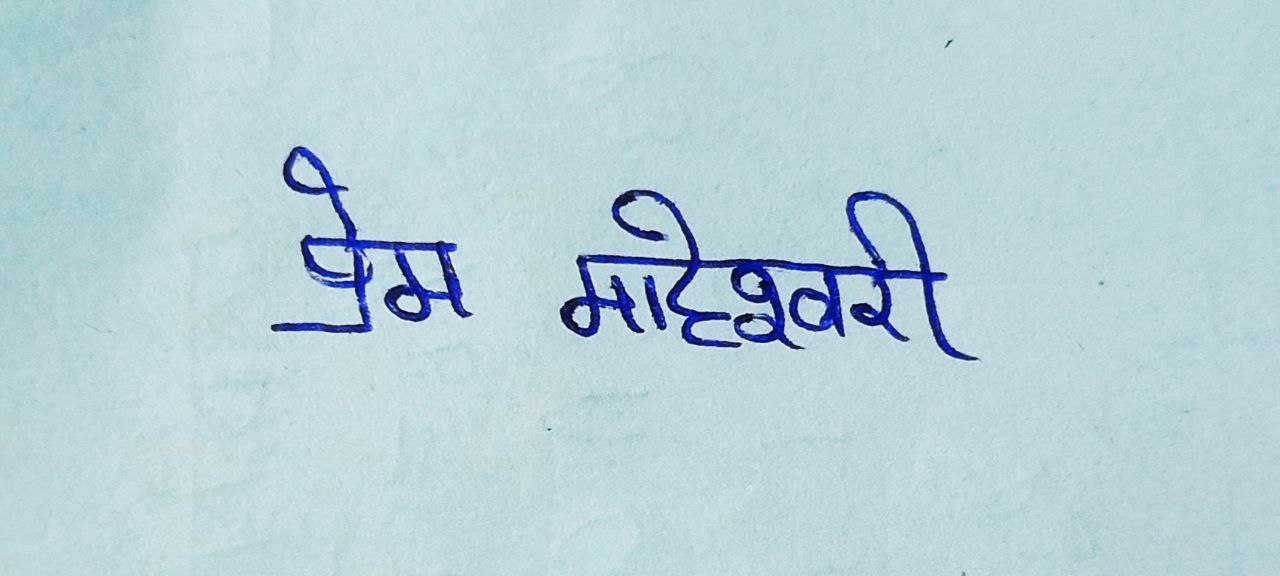 प्रेम माहेश्वरी